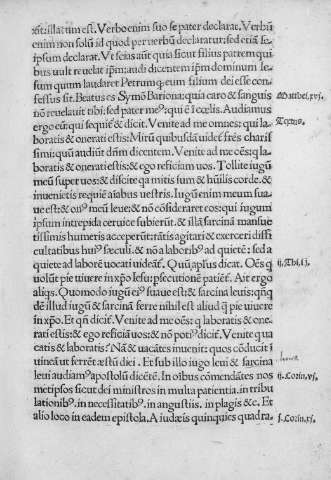 xstillatum est. Verbo enim suo se pater declarat. Verbũ
enim non solũ id quod per uerbũ declaratur: sed etiã se
ipsum declarat. Vt scias aũt quia sicut filius patrem qui
bus uult reuelat ipm̃: audi dicentem ip̃m dominum Ie
sum quum laudaret Petrum quem filium dei esse con
fessus sit. Beatus es Symõ Bariona: quia caro & sanguis
nõ reuelauit tibi: sed pater meꝰ: qui ĩ cœlis. Audiamus
Matthei. xvj.
ergo eũ: qui sequit̃ & dicit. Venite ad me omnes: qui la
Textus.
boratis & onerati estis: Mirũ quibusdã uidet̃ fr̃es charis
simi: quũ audiũt dñm dicentem. Venite ad me oẽs: q̃ la
boratis & onerati estis: & ego reficiam uos. Tollite iugũ
meũ super uos: & discite q̃a mitis sum & hũilis corde. &
inuenietis requiẽ aĩabus uestris. Iugũ enim meum sua
ue est: & onꝰ meũ leue: & nõ cõsideraret eos: qui iugum
ipsum intrepida ceruice subierũt. & illã sarcinã mansue
tissimis humeris acceperũt: tãtis agitari & exerceri diffi
cultatibus huiꝰ seculi. & nõ a laboribꝰ ad quietẽ: sed a
quiete ad laborẽ uocati uideãt̃. Quũ apl̃us dicat. Oẽs q̃
ij. Thi. iij.
uolũt pie uiuere in xp̃o Iesu: ꝑsecutionẽ patiẽt̃. Ait ergo
aliqs. Quomodo iugũ eiꝰ suaue est: & sarcina leuis: qñq̃
dẽ illud iugũ & sarcinã ferre nihil est aliud q̃ pie uiuere
in xp̃o. Et qñ dicit̃. Venite ad me oẽs: q̃ laboratis & one
rati estis: & ego reficiã uos: & nõ potiꝰ dicit̃. Venite qui ua
catis & laboratis: Nã & uacãtes inuenit: quos cõducit ĩ
uineã ut ferrẽt æstũ diei. Et sub illo iugo leni & sarcina
leui audiamꝰ apostolũ dicẽtẽ. In oĩbus comendãtes nos
ij. Corin. vj.
metipsos sicut dei ministros in multa patientia. in tribu
lationibꝰ. in necessitatibꝰ. in angustiis. in plagis &c. Et
alio loco in eadem epistola. A iudæis quinquies quadra
ij. Corin. xj.